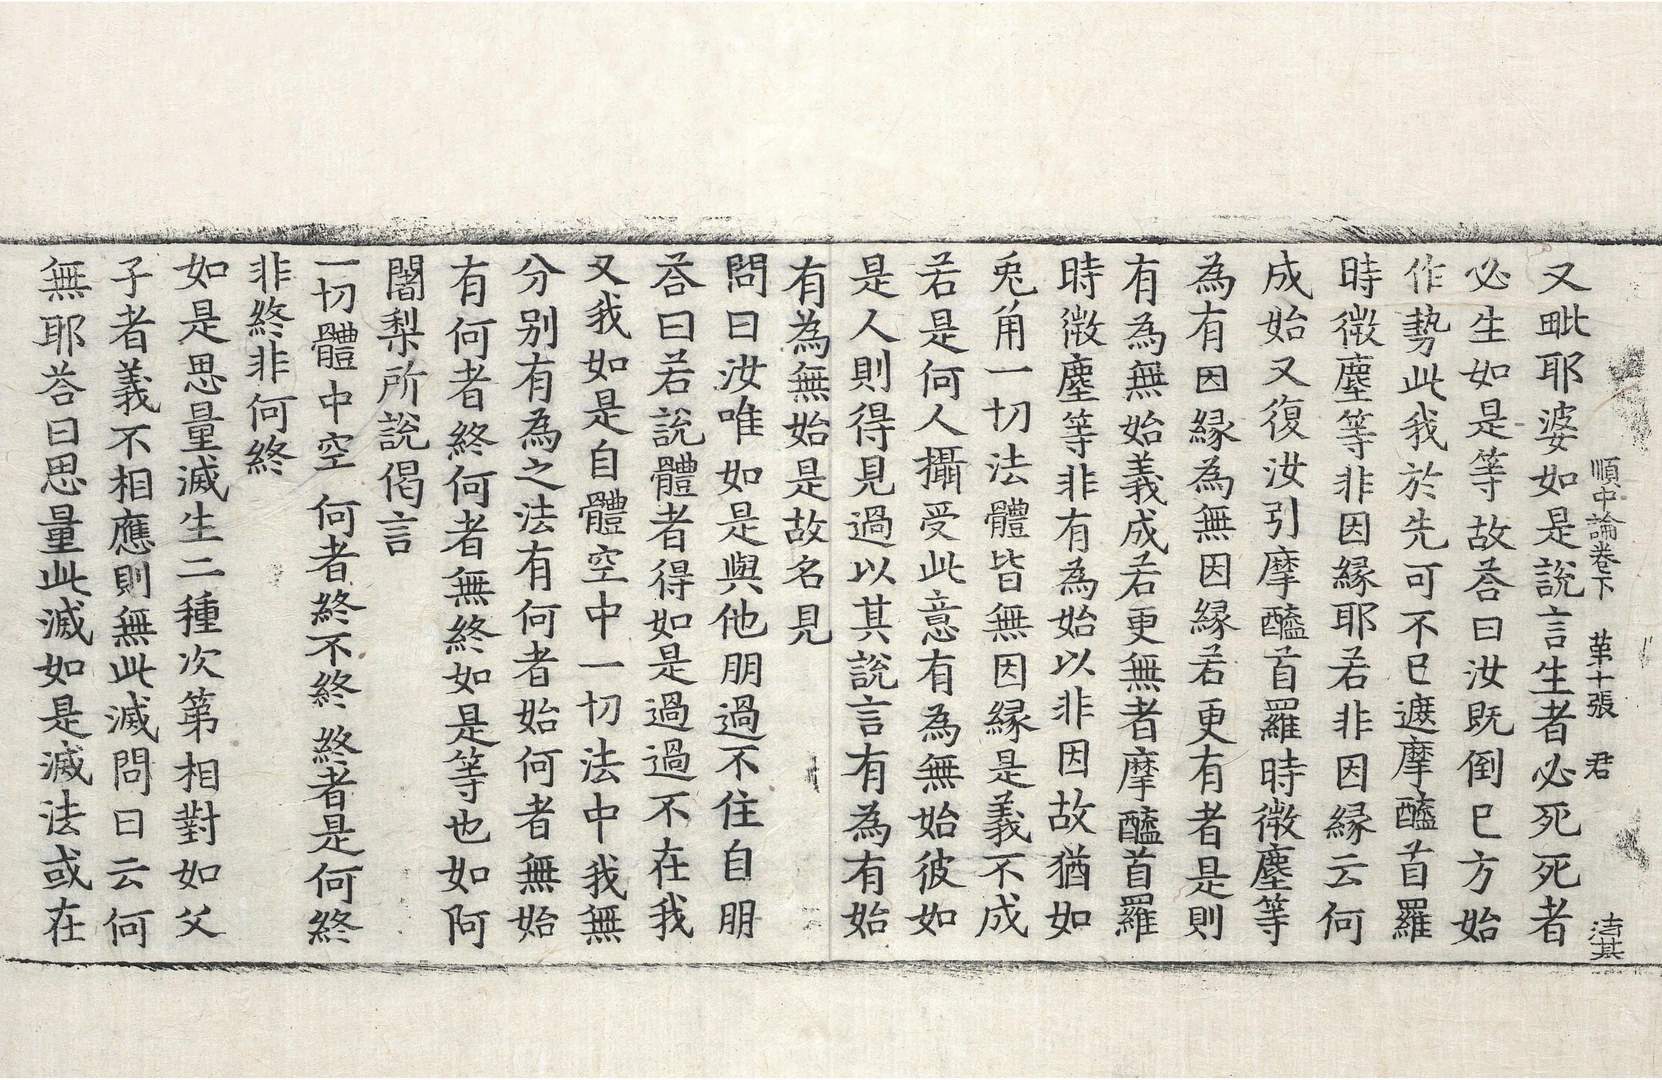 順中論卷下 苐十張 君 浩其
又毗耶婆如是說言生者必死死者
必生如是等故荅曰汝既倒巳方始
作勢此我於先可不巳遮摩醯首羅
時微塵等非因緣耶若非因緣云何
成始又復汝引摩醯首羅時微塵等
為有因緣為無因緣若更有者是則
有為無始義成若更無者摩醯首羅
時微塵等非有為始以非因故猶如
兎角一切法體皆無因緣是義不成
若是何人攝受此意有為無始彼如
是人則得見過以其說言有為有始
有為無始是故名見
問曰汝唯如是與他朋過不住自朋
荅曰若說體者得如是過過不在我
又我如是自體空中一切法中我無
分別有為之法有何者始何者無始
有何者終何者無終如是等也如阿
闍梨所說偈言
一切體中空 何者終不終 終者是何終
非終非何終
如是思量滅生二種次第相對如父
子者義不相應則無此滅問曰云何
無耶荅曰思量此滅如是滅法或在